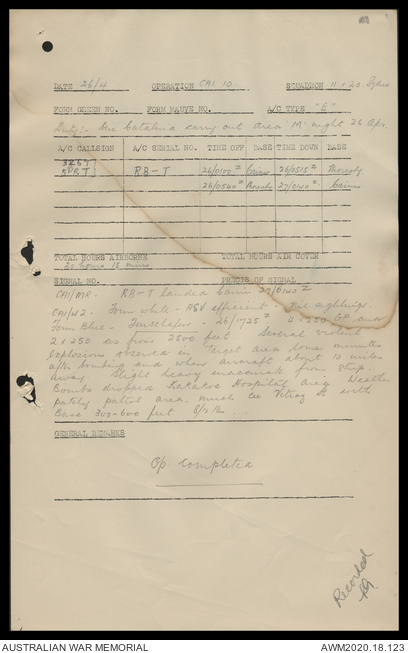 DATE 26/4 OPERATION CAI 10 SQUADRON 11 & 20 Sqdns
FORM GREEN NO. FORM MAUVE NO. A/C TYPE "E"
Duty:- One Catalina carry out area 'M' night 26 Apr.
A/C CALLSION A/C SERIAL NO. TIME OFF BASE TIME DOWN BASE
3267
RB-T 26/0100 Z Cairns 26/0515 Z Moresby
26/0540 Z Moresby 27/0140 Z Cairns
TOTAL HOURS AIRBORNE TOTAL HOURS AIR COVER
hours 15 mins
SIGNAL NO. PRECIS OF SIGNAL
RB-T landed Cairns 27/0140 Z
Form white - ASV efficient - Nil sightings.
Form Blue - Finschafen - 26/1725 Z 4 x 250 GP and
2 x 250 as from 2500 feet Several violent
explosions observed in Target area some minutes
after bombing and when aircraft about 10 miles
away. Slight heavy inaccurate from ship.
Bombs dropped Kakakog Hospital area Weather
patchy patrol area. much with
Base 300-600 feet 8/10
GENERAL REMARKS
Op Completed
Recorded
AUSTRALIAN WAR MEMORIAL AWM2020.18.123